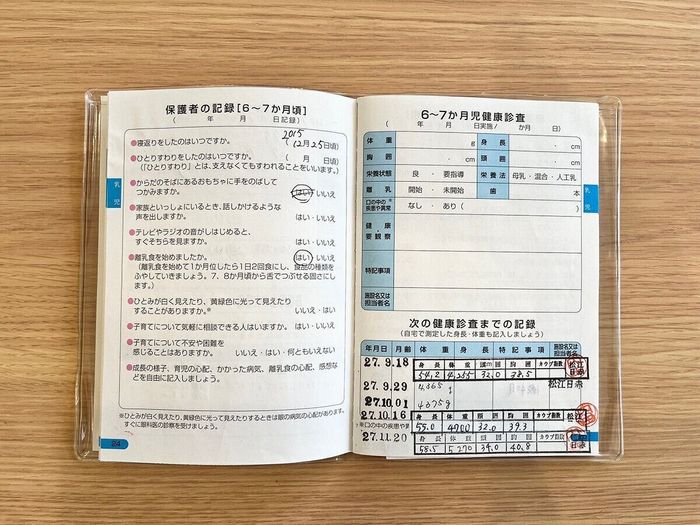 保護者の記録[6～7か月頃]
（　年　月　日記録）
●寝返りをしたのはいつですか。
2015
（12月25日頃）
●ひとりすわりをしたのはいつですか。（　月　日頃）
（「ひとりすわり」とは、支えなくてもすわれることをいいます。）
●からだのそばにあるおもちゃに手をのばして
つかみますか。　はい・いいえ
●家族といっしょにいるとき、話しかけるような
声を出しますか。　はい・いいえ
●テレビやラジオの音がしはじめると、
すぐそちらを見ますか。　はい・いいえ
●離乳食を始めましたか。　はい・いいえ
（離乳食を始めて1か月位したら1日2回食にし、食品の種類を
ふやしていきましょう。7、8か月頃から舌でつぶせる固さにし
ます。）
●ひとみが白く見えたり、黄緑色に光って見えたり
することがありますか。*　いいえ・はい
●子育てについて気軽に相談できる人はいますか。　はい・いいえ
●子育てについて不安や困難を
感じることはありますか。　いいえ・はい・何ともいえない
●成長の様子、育児の心配、かかった病気、離乳食の心配、感想な
どを自由に記入しましょう。
※ひとみが白く見えたり、黄緑色に光って見えたりするときは眼の病気の心配があります。
すぐに眼科医の診察を受けましょう。
24
乳児
6～7か月児健康診査
（　年　月　日実施/　か月　日）
体重　g　身長　．cm
胸囲　．cm　頭囲　．cm
栄養状態　良・要指導　栄養法　母乳・混合・人工乳
離乳　開始・未開始　歯　本
口の中の※
疾患や異常　なし・あり（　）
健康
・
要観察
特記事項
施設名又は
担当者名
乳児
次の健康診査までの記録
（自宅で測定した身長・体重も記入しましょう）
年月日　月齢　体重　身長　特記事項　施設名又は
担当者名
27.9.18　身長　体重　頭囲　胸囲　カウプ指数　松江日赤
54.2　4,255　32.0　38.5
27.9.29　4,365g　松江日赤
27.10.01　4375g
27.10.16　身長　体重　頭囲　胸囲　カウプ指数　松江
55.0　4700　32.0　39.3
※口の中の疾患や異
27.11.20　身長　体重　頭囲　胸囲　カウプ指数
58.5　5,270　34.0　40.8